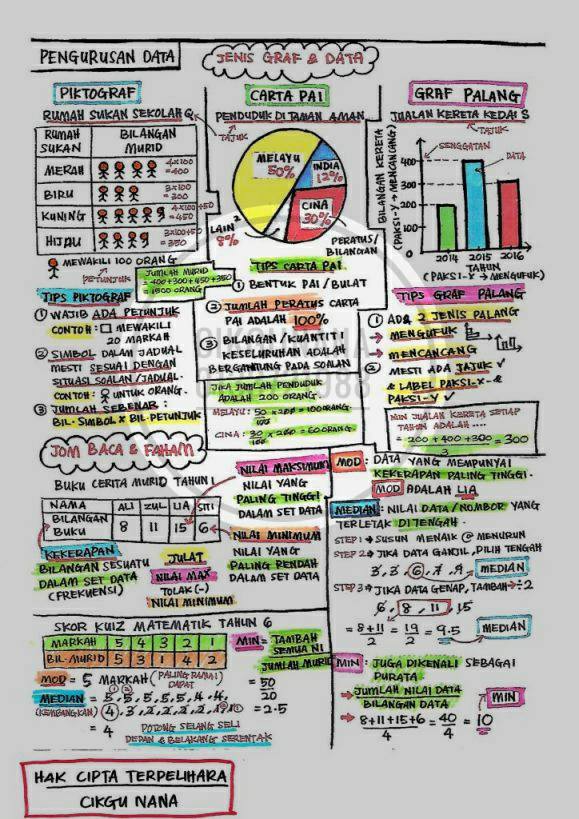 PENGURUSAN DATA
JENIS GRAF & DATA
PIKTOGRAF
RUMAH SUKAN SEKOLAH Q
TAJUK
RUMAH SUKAN
BILANGAN MURID
MERAH
4x100
=400
BIRU
3x100
=300
KUNING
4x100+50
=450
HIJAU
3x100+50
=350
MEWAKILI 100 ORANG
PETUNJUK
JUMLAH MURID
=400+300+450+350
=1500 ORANG
TIPS PIKTOGRAF
① WAJIB ADA PETUNJUK
CONTOH: □ MEWAKILI
20 MARKAH
② SIMBOL DALAM JADUAL
MESTI SESUAI DENGAN
SITUASI SOALAN/JADUAL.
CONTOH: UNTUK ORANG.
③ JUMLAH SEBENAR:
BIL·SIMBOL X BIL·PETUNJUK
CARTA PAI
PENDUDUK DI TAMAN AMAN
MELAYU
50%
INDIA
12%
CINA
30%
LAIN²
8%
PERATUS/
BILANGAN
TIPS CARTA PAI
① BENTUK PAI/BULAT
② JUMLAH PERATUS CARTA
PAI ADALAH 100%
③ BILANGAN/KUANTITI
KESELURUHAN ADALAH
BERGANTUNG PADA SOALAN
JIKA JUMLAH PENDUDUK
ADALAH 200 ORANG.
MELAYU: 50/100 x 200 = 100 ORANG
CINA: 30/100 x 200 = 60 ORANG
GRAF PALANG
JUALAN KERETA KEDAI S
TAJUK
BILANGAN KERETA
(PAKSI-Y → MENCANCANG)
SENGGATAN
DATA
400
300
200
100
2014 2015 2016
TAHUN
(PAKSI-X → MENGUFUK)
TIPS GRAF PALANG
① ADA 2 JENIS PALANG
→ MENGUFUK
→ MENCANCANG
② MESTI ADA TAJUK ✓
& LABEL PAKSI-X- &
PAKSI-Y ✓
MIN JUALAN KERETA SETIAP
TAHUN ADALAH....
= 200 + 400 + 300 = 300
3
JOM BACA & FAHAM
BUKU CERITA MURID TAHUN 1
NAMA ALI ZUL LIA SITI
BILANGAN BUKU 8 11 15 6
KEKERAPAN
BILANGAN SESUATU
DALAM SET DATA
(FREKUENSI)
JULAT
NILAI MAX
TOLAK(-)
NILAI MINIMUM
NILAI MAKSIMUM
NILAI YANG
PALING TINGGI
DALAM SET DATA
NILAI MINIMUM
NILAI YANG
PALING RENDAH
DALAM SET DATA
MOD: DATA YANG MEMPUNYAI
KEKERAPAN PALING TINGGI.
MOD ADALAH LIA
MEDIAN: NILAI DATA/NOMBOR YANG
TERLETAK DI TENGAH.
STEP 1 → SUSUN MENAIK @ MENURUN
STEP 2 → JIKA DATA GANJIL, PILIH TENGAH
3, 3, 6, 7, 9 MEDIAN
STEP 3 → JIKA DATA GENAP, TAMBAH → ÷2
6, 8, 11, 15
= 8+11/2 = 19/2 = 9.5 MEDIAN
MIN: JUGA DIKENALI SEBAGAI
PURATA
→ JUMLAH NILAI DATA
BILANGAN DATA
MIN
→ 8+11+15+6/4 = 40/4 = 10
SKOR KUIZ MATEMATIK TAHUN 6
MARKAH 5 4 3 2 1
BIL·MURID 5 3 1 4 2
MOD = 5 MARKAH (PALING RAMAI DAPAT
MEDIAN = 5, 5, 5, 5, 5, 4, 4,
(KEMBANGKAN) 4, 3, 2, 2, 2, 2, 1, 1
= 4
POTONG SELANG SELI
DEPAN & BELAKANG SERENTAK
MIN = TAMBAH
SEMUA NI
JUMLAH MURID
= 50
20
= 2.5
HAK CIPTA TERPELIHARA
CIKGU NANA